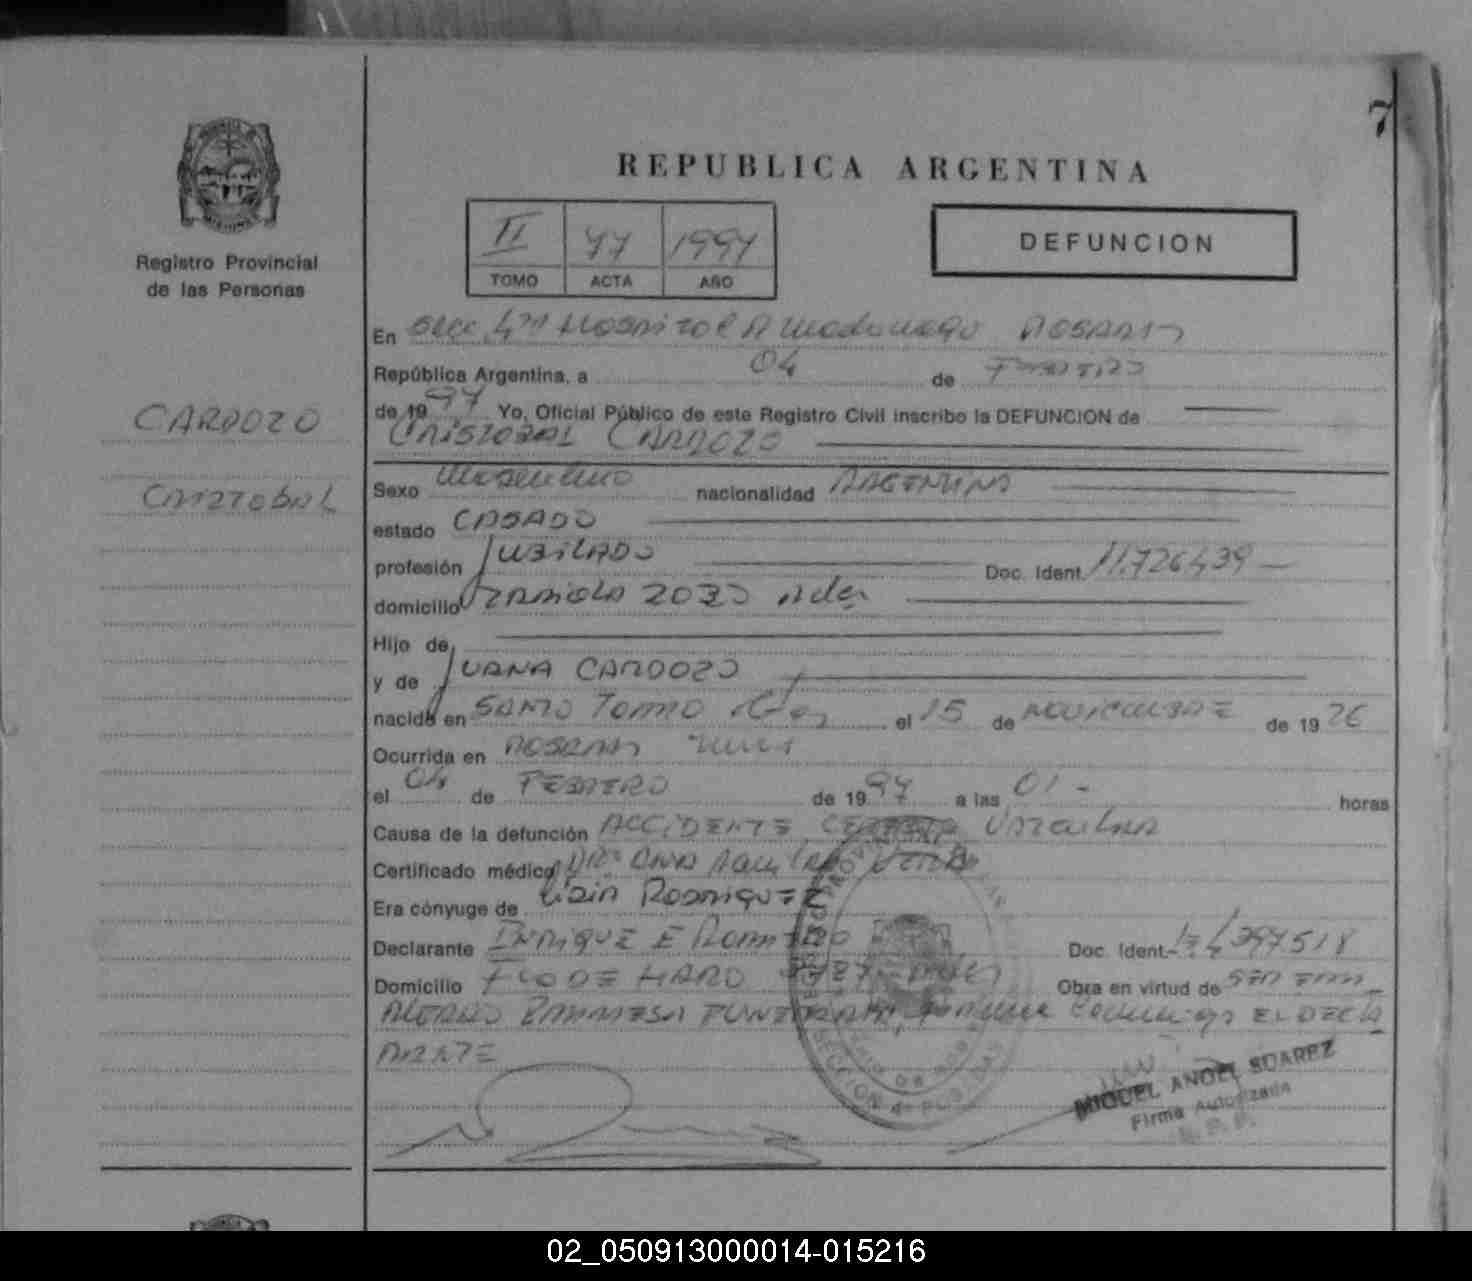 7
REPUBLICA ARGENTINA
II 77 1997
TOMO ACTA AÑO
DEFUNCION
Registro Provincial
de las Personas
CARDOZO
CRISTOBAL
En Secc 4ta Hospital R Madariaga POSADAS
República Argentina, a 04 de FEBRERO
de 1997 Yo, Oficial Público de este Registro Civil inscribo la DEFUNCION de
CRISTOBAL CARDOZO
Sexo Masculino nacionalidad ARGENTINA
estado CASADO
profesión JUBILADO Doc. Ident. 11.726439
domicilio 2030 Pdas
Hijo de
y de JUANA CARDOZO
nacido en SANTO TOMO el 15 de NOVIEMBRE de 1926
Ocurrida en POSADAS Mnes
el 04 de FEBRERO de 1997 a las 01 - horas
Causa de la defunción ACCIDENTE CEREBRO VASCULAR
Certificado médico DRA ANA
Era cónyuge de RODRIGUEZ
Declarante ENRIQUE E ROMERO Doc. Ident. 397.518
Domicilio FCO DE HARO Pdas Obra en virtud de SER EMPL
EMPRESA FUNEBRE EL DECLA
RANTE
SECCION 4ª POSADAS
MIGUEL ANGEL SUAREZ
Firma Autorizada
R.P.P.
02_050913000014-015216